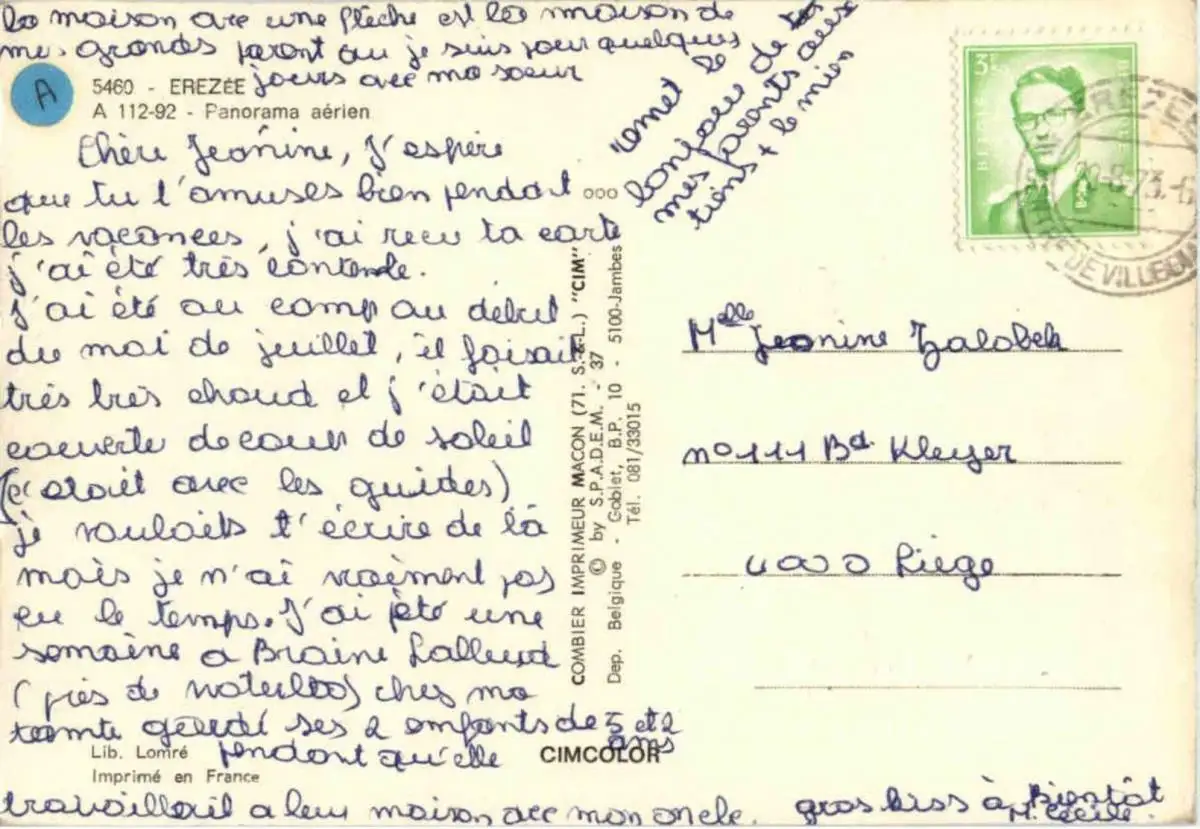 la maison avec une flèche est la maison de
mes grands parent ou je suis pour quelques
jours avec ma soeur
A
5460 - EREZÉE
A 112-92 - Panorama aérien
Chère Jeanine, J'espère
que tu t'amuses bien pendant ...
les vacances, j'ai recu ta carte
j'ai été très contente.
J'ai été au camp au début
du moi de juillet, il faisait
très très chaud et j'était
couverte de coup de soleil
(c'etait avec les guides)
je voulais t'écrire de là
mais je n'ai vraiment pas
eu le temps. J'ai été une
semaine a Braine Lalleud
(près de Waterloo) chez ma
tante gardé ses 2 enfants de 5 et 2
ans
pendant qu'elle
travaillait a leur maison avec mon oncle.
gros biss à Bientôt
M. Cécile.
Lib. Lomré
Imprimé en France
CIMCOLOR
COMBIER IMPRIMEUR MACON (71. S.-&-L.) "CIM"
© by S.P.A.D.E.M. - 37
Dep. Belgique - Goblet, B.P. 10 - 5100-Jambes
Tél. 081/33015
omet le
bonjour de
mes parents aux
tiens + le mien
3F
BELGIE
EREZEE
20-8-73.-6
DE VILLEGIA
Melle Jeanine Zalobek
no 111 Bd. Kleyer
4000 Liège